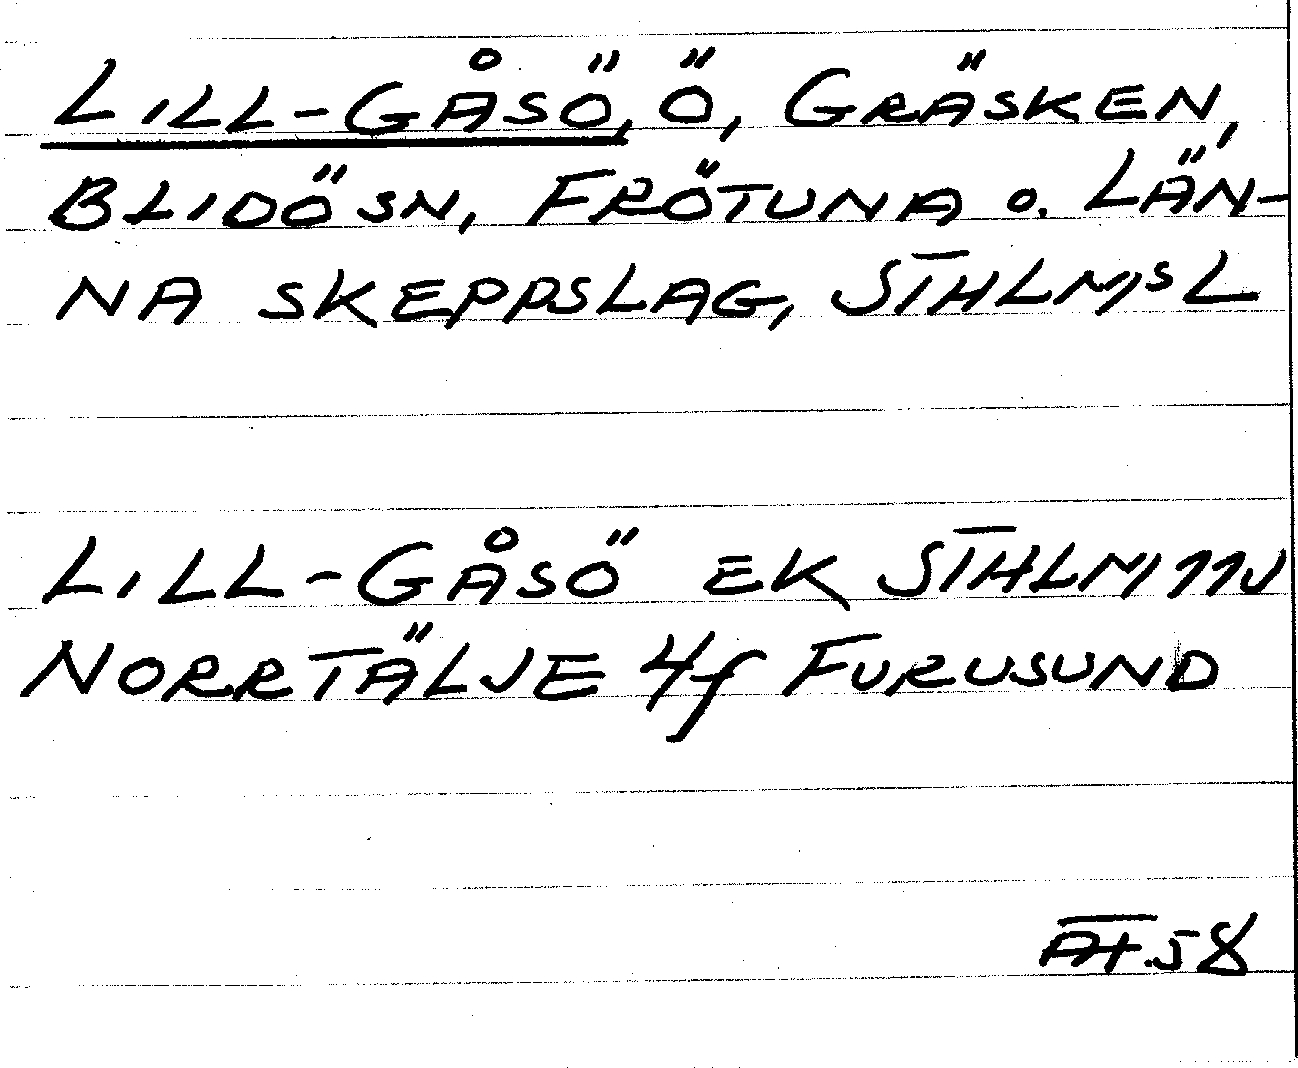 LILL-GÅSÖ, Ö, GRÄSKEN,
BLIDÖ SN, FRÖTUNA O. LÄN-
NA SKEPPSLAG, STHLMS L
LILL-GÅSÖ EK STHLM 11J
NORRTÄLJE 4f FURUSUND
AT.58